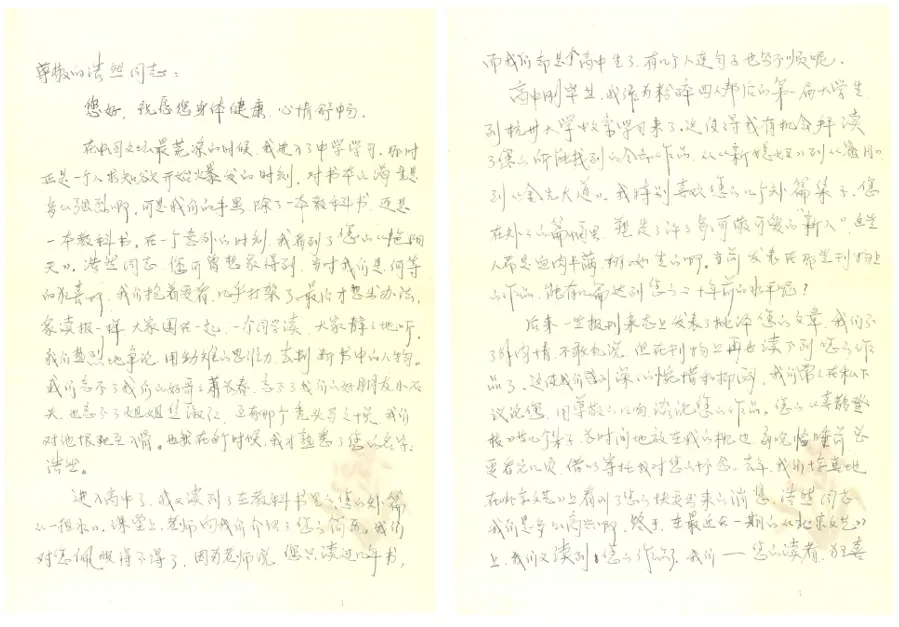 尊敬的浩然同志：
您好，祝愿您身体健康，心情舒畅。
在我国文坛最荒凉的时候，我进入了中学学习。那时
正是一个人求知欲开始爆发的时刻，对书本的渴望是
多么强烈啊，可是我们的手里，除了一本教科书，还是
一本教科书。在一个意外的时刻，我看到了您的《艳阳
天》。浩然同志，您可曾想象得到，当时我们是何等
的狂喜啊，我们抢着要看，几乎打架了，最后才想出办法，
象读报一样，大家围在一起，一个同学读，大家静静地听，
我们热烈地争论，用幼稚的思维力，去判断书中的人物。
我们忘不了我们的好哥哥萧长春，忘不了我们的好朋友小石
头，也忘不了姐姐焦淑红，还有那个秃头马之悦，我们
对他恨死至入骨。也就在那个时候，我才熟悉了您的名字：
浩然。
进入高中了，我又读到了在教科书里的您的短篇
《一担水》。课堂上，老师向我们介绍了您的简历，我们
对您佩服得不得了，因为老师说，您只读过几年书，
而我们却是个高中生了，有几个人连句子也写不顺呢。
高中刚毕业，我作为粉碎四人帮后的第一届大学生，
到杭州大学中文系学习来了。这使得我有机会拜读
了您的所能找到的全部作品，从《新媳妇》到《蜜月》
到《金光大道》。我特别喜欢您的几个短篇集子，您
在短短的篇幅里，塑造了许许多多可敬可爱的“新人”，这些
人都是血肉丰满，栩栩如生的啊。当前发表在那些刊物上
的作品，能有几篇达到您的二十年前的水平呢？
后来一些报刊杂志上发表了批评您的文章，我们不
了解内情，不敢乱说，但在刊物上再也读不到您的作
品了，这使我们感到深深的惋惜和抑闷，我们常常在私下
议论您，用尊敬的口气谈论您的作品。您的《喜鹊登
枝》等几个集子，长时间地放在我的枕边，每晚临睡前总
要看它几页，借以寄托我对您的怀念。去年，我们惊喜地
在《北京文艺》上看到了您的快要出来的消息，浩然同志，
我们是多么高兴啊，终于，在最近的一期的《北京文艺》
上，我们又读到了您的作品了。我们——您的读者，狂喜